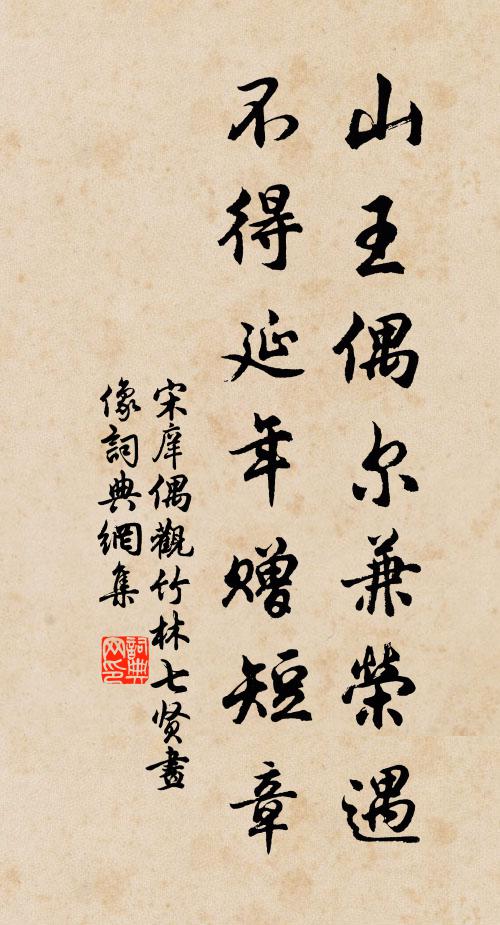 山王偶尔兼榮遇
不得延年贈短章
宋庠偶觀竹林七贤畫
像詞典網集
詞典网印